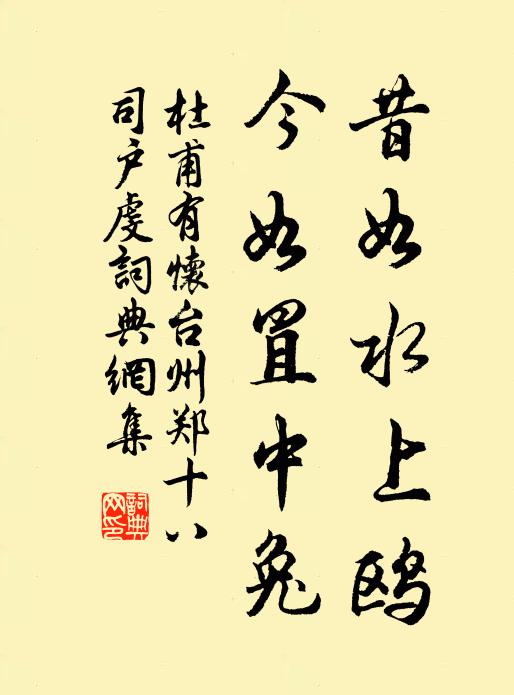 昔如水上鸥
今如罝中兔
杜甫有懷台州郑十八
司户虔詞典網集
詞典
网印